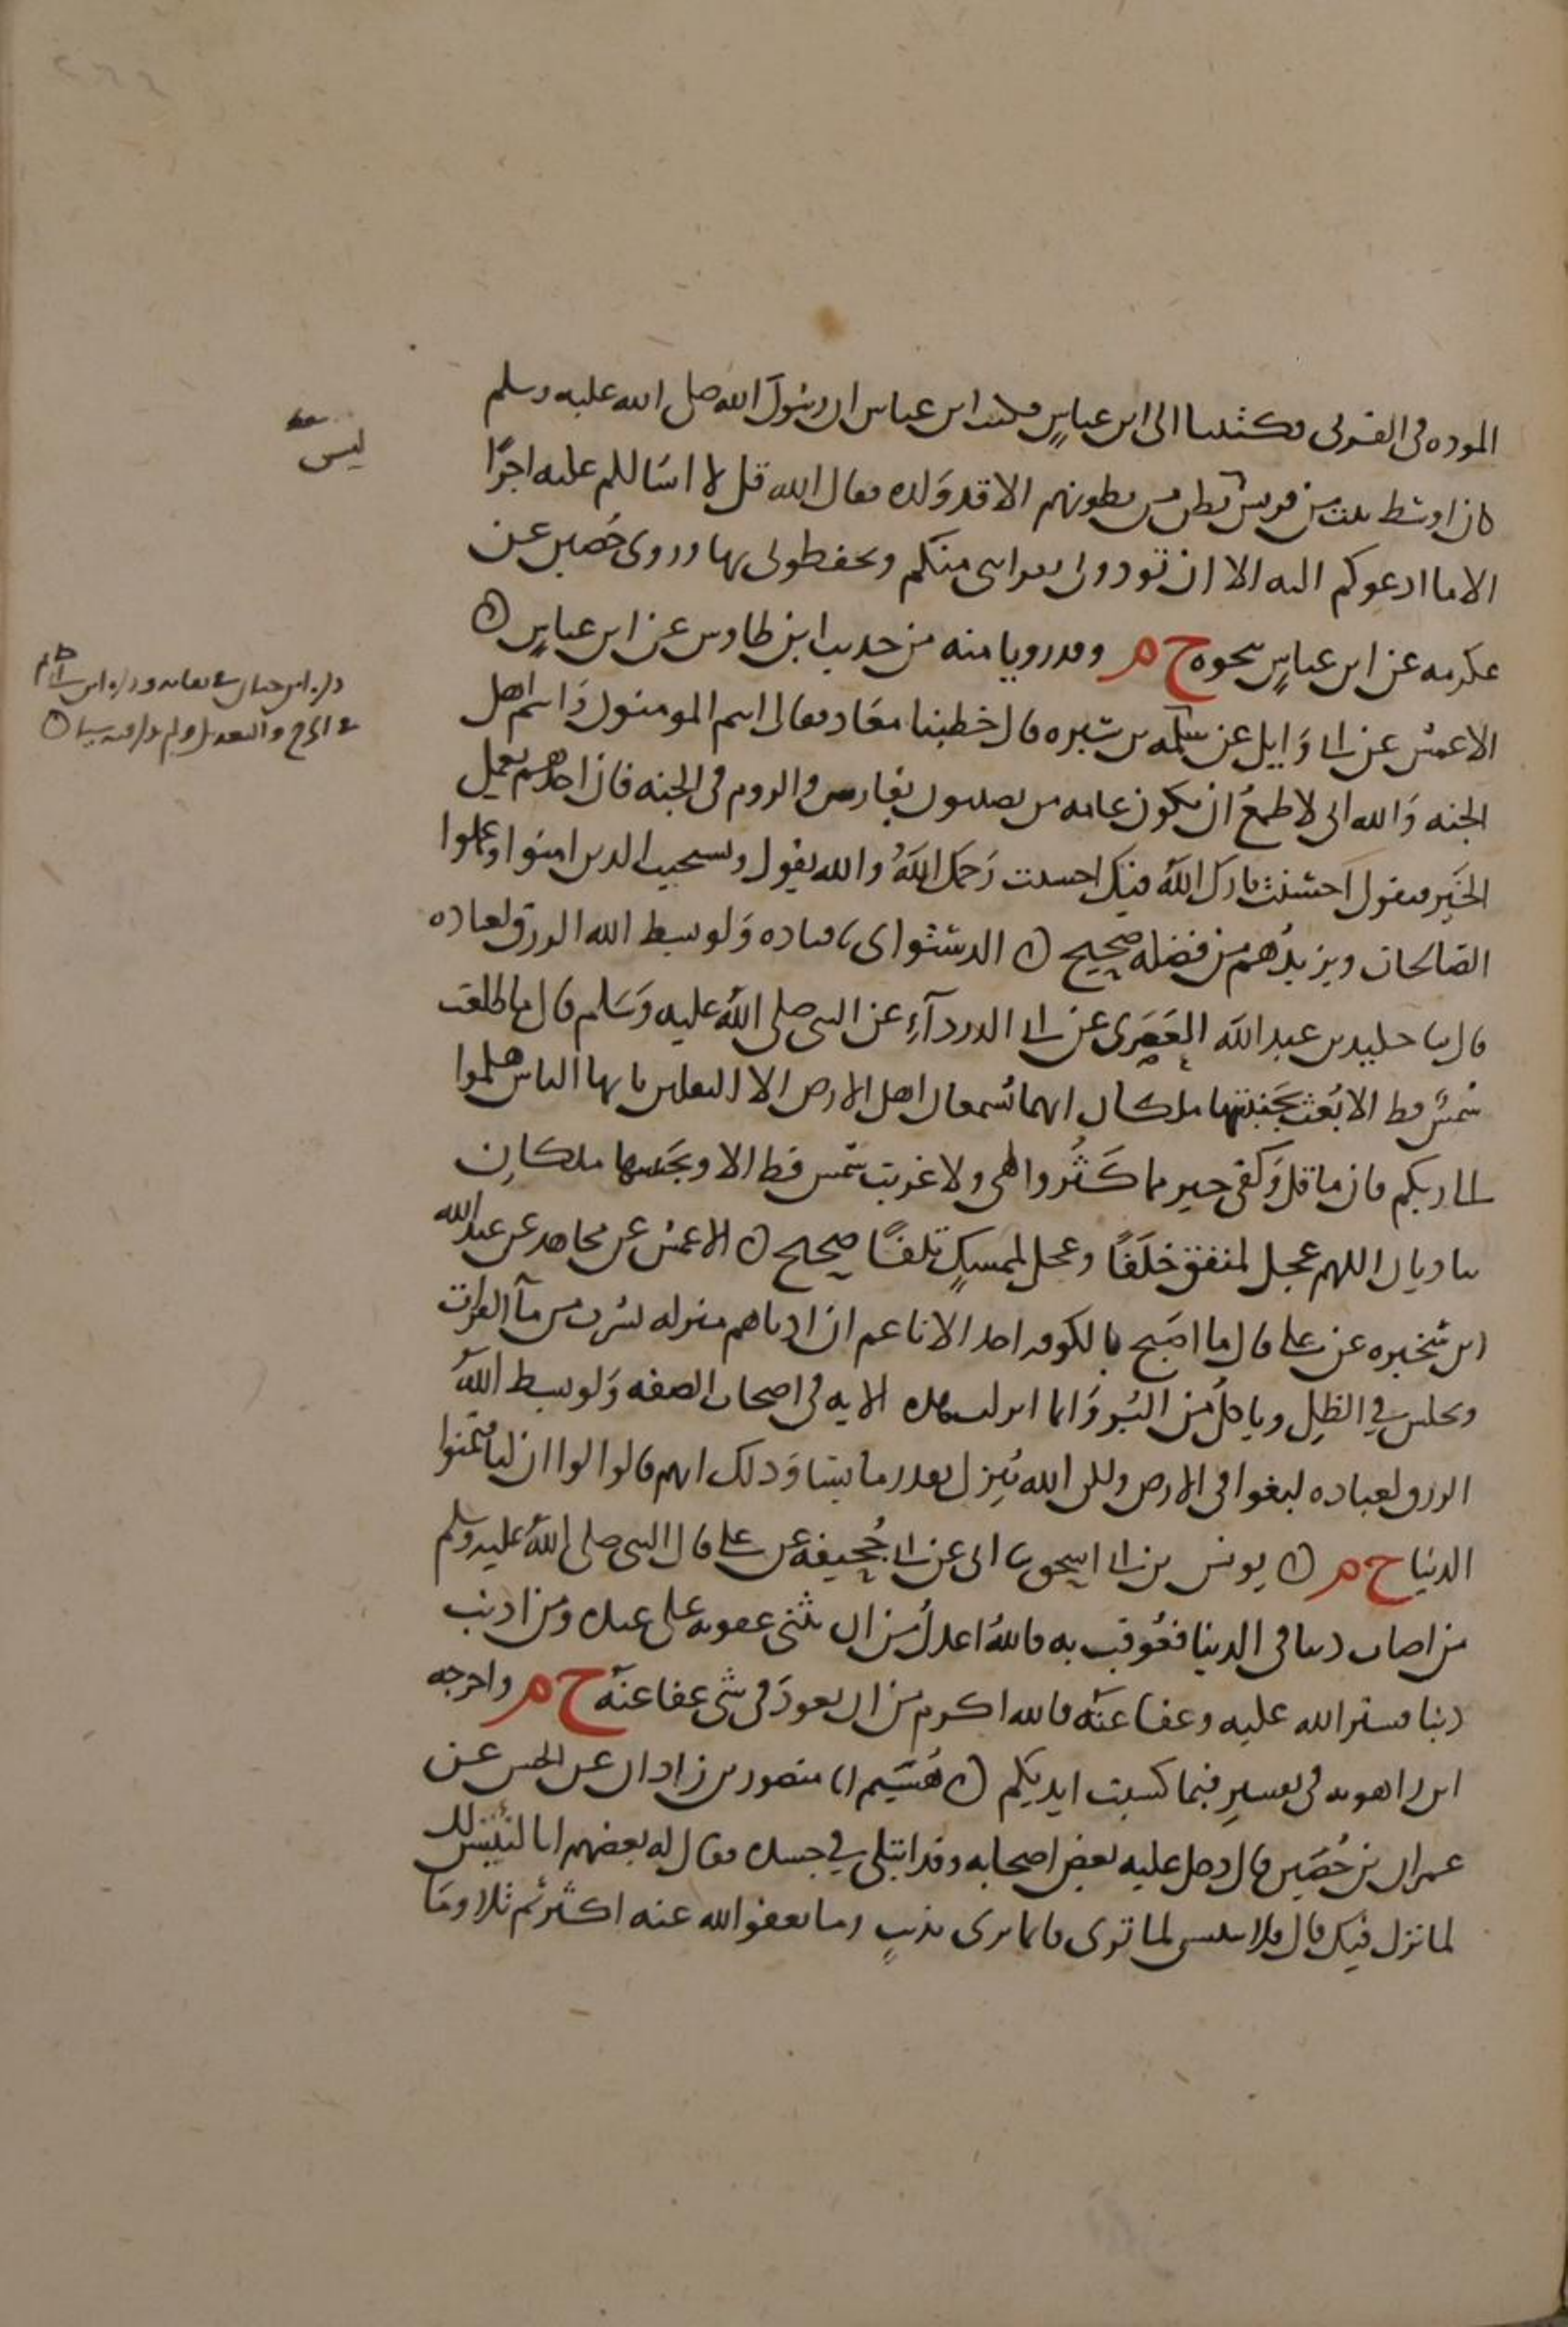 الموده في القربى فكتبنا الى ابن عباس فكتب ابن عباس ان رسول الله صلى الله عليه وسلم
كان اوسط بيت من قريش ليس بطن من بطونهم الا قد ولده فقال الله قل لا اسالكم عليه اجرًا
الا ما ادعوكم اليه الا ان تودوني لقرابتي منكم وتحفظوني بها وروى حُصين عن
عكرمه عن ابن عباسٍ نحوه خ م وقد رويا منه من حديث ابن طاوس عن ابن عباسٍ
الاعمش عن ابي وَايل عن سلمه بن سبره قال خطبنا معَاد فقال انتم المومنون وَانتم اهل
الجنه وَالله اني لاطمعُ ان يكون عامه من تصيبون بفارس والروم في الجنه فان احدهم يعمل
الخَيرفيقول اَحسَنت بارك اللهُ فيك احسنت رَحمك اللهُ والله يقول ويستجيب الدين امنوا وعملوا
الصَالحات ويزيدُهم من فضله صحيح الدستُواي ثنا قتاده وَلو بسط الله الرزق لعباده
قال ثنا خليد بن عبد الله العَصَرى عن ابي الدردآءِ عن النبي صلى اللهُ عليه وَسَلم قال ما طلعَت
شمسٌ قط الا بُعث بجَنبَتيها ملكان انهما يُسمعان اهل الارض الا الثقلين يايها الناس هلموا
الى ربكم فان ما قل وَكفى خير مما كَثُر والهى ولا غربت شمس قط الا وبجَنبتيها ملكانِ
يناديان اللهم عجل لمنفق خلَفًا وعجل لممسكٍ تلفًا صحيح الاعمش عن مجاهد عن عبد الله
ابن سَخبره عن علي قال ما اصَبح بالكوفه احد الا ناعم ان ادناهم منزله يشرب من مآ الفرات
ويجلس في الظلِ وياكلُ من البُر وَانما انزلت هذه الايه في اصحاب الصفه وَلو بسط اللهُ
الرزق لعباده لبغوا في الارض ولكن الله يُنِزل بقدر ما يشا وَدلك انهم قالوا لو ان لنا فتمنوا
الدنيا خ م يونس بن ابي اسحق ثنا ابي عن ابي جُحيفه عن علي قال النبي صلى اللهُ عليه وسلم
من اصاب دنبا في الدنيا فعُوقب به فاللهُ اعدلُ من ان يثني عقوبه على عبده ومن ادنب
دنبا فستر الله عليه وعفا عنَه فالله اكرم من ان يعودَ في شى عفا عنهَ خ م واخرجه
ابن راهويه في تفسيرِ فبما كسبت ايديكم هُشَيم انا منصور بن زادان عن الحسن عن
عمران بن حُصَين قال دخل عليه بعض اصحابه وقد ابتُلي في جسده فقال له بعضهم انا لنَبتئس لك
لما نزل فيك قال فلا تبتئس لما ترى فانما ترى بذنبٍ وما يعفوا الله عنه اكثر ثم تلا وما
ليس
ذكره ابن حبان في ثقاته وذكره ابن ابي حاتم
في الجرح والتعديل ولم يذكر فيه شيئا